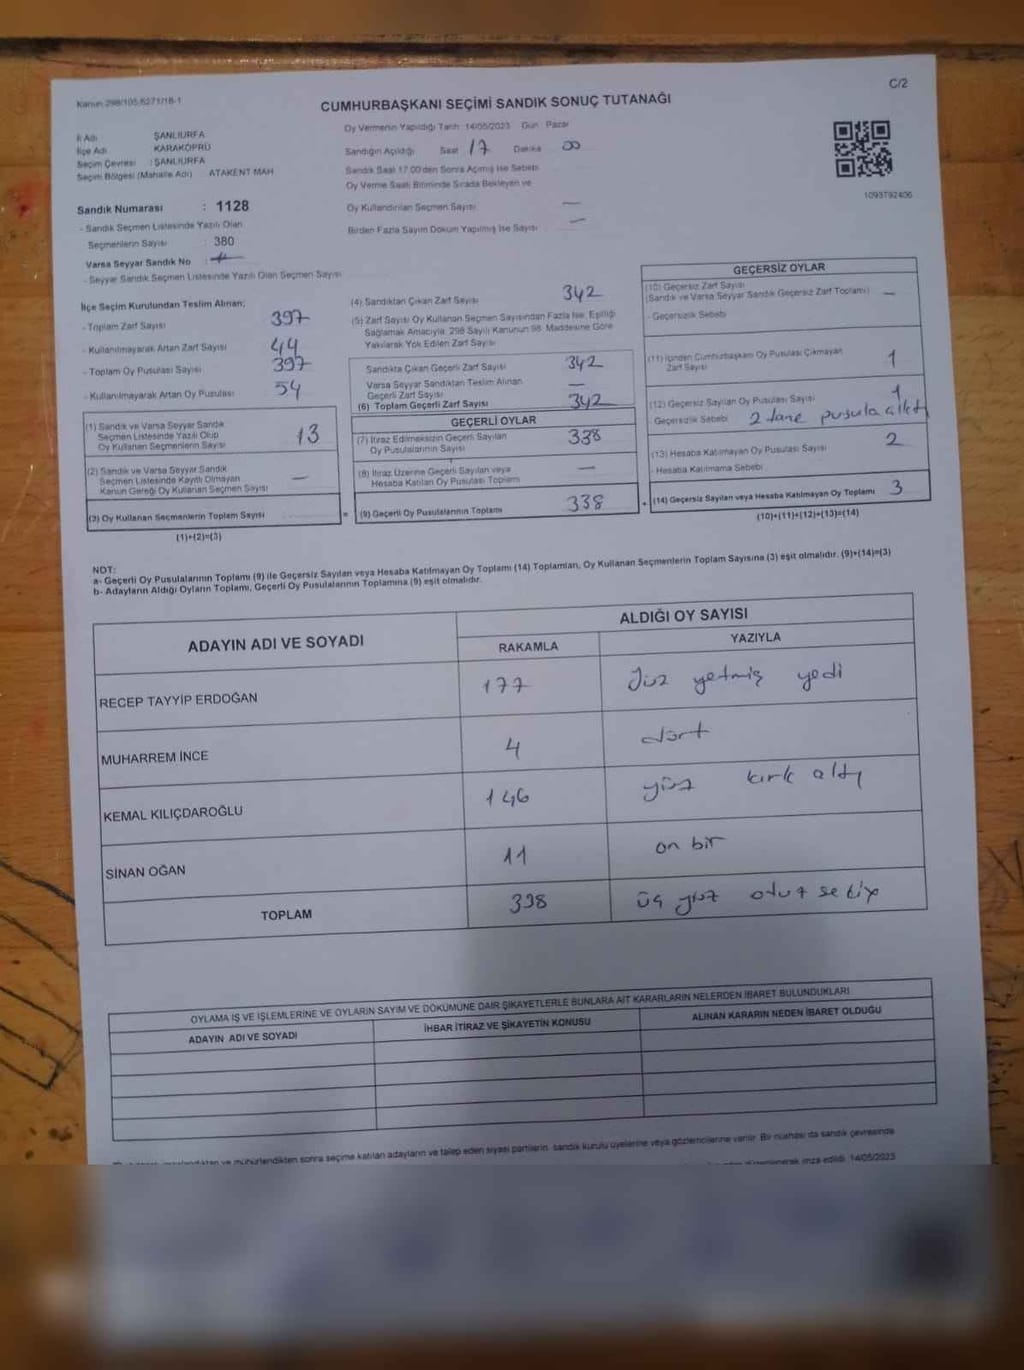 Kanun 298/105,6271/18-1
C/2
CUMHURBAŞKANI SEÇİMİ SANDIK SONUÇ TUTANAĞI
İl Adı : ŞANLIURFA
İlçe Adı : KARAKÖPRÜ
Seçim Çevresi : ŞANLIURFA
Seçim Bölgesi (Mahalle Adı) ATAKENT MAH
Oy Vermenin Yapıldığı Tarih :14/05/2023 Gün : Pazar
Sandığın Açıldığı Saat 17 Dakika 00
Sandık Saat 17:00'den Sonra Açılmış İse Sebebi
Oy Verme Saati Bitiminde Sırada Bekleyen ve
Oy Kullandırılan Seçmen Sayısı —
Birden Fazla Sayım Döküm Yapılmış İse Sayısı —
1093792406
Sandık Numarası : 1128
- Sandık Seçmen Listesinde Yazılı Olan
Seçmenlerin Sayısı : 380
Varsa Seyyar Sandık No :
- Seyyar Sandık Seçmen Listesinde Yazılı Olan Seçmen Sayısı
İlçe Seçim Kurulundan Teslim Alınan;
- Toplam Zarf Sayısı 397
- Kullanılmayarak Artan Zarf Sayısı 44
- Toplam Oy Pusulası Sayısı 397
- Kullanılmayarak Artan Oy Pusulası 54
(1) Sandık ve Varsa Seyyar Sandık
Seçmen Listesinde Yazılı Olup
Oy Kullanan Seçmenlerin Sayısı 13
(2) Sandık ve Varsa Seyyar Sandık
Seçmen Listesinde Kayıtlı Olmayan
Kanun Gereği Oy Kullanan Seçmen Sayısı —
(3) Oy Kullanan Seçmenlerin Toplam Sayısı =
(1)+(2)=(3)
(4) Sandıktan Çıkan Zarf Sayısı 342
(5) Zarf Sayısı Oy Kullanan Seçmen Sayısından Fazla İse, Eşitliği
Sağlamak Amacıyla, 298 Sayılı Kanunun 98. Maddesine Göre
Yakılarak Yok Edilen Zarf Sayısı
Sandıkta Çıkan Geçerli Zarf Sayısı 342
Varsa Seyyar Sandıktan Teslim Alınan
Geçerli Zarf Sayısı —
(6) Toplam Geçerli Zarf Sayısı 342
GEÇERLİ OYLAR
(7) İtiraz Edilmeksizin Geçerli Sayılan
Oy Pusulalarının Sayısı 338
(8) İtiraz Üzerine Geçerli Sayılan veya
Hesaba Katılan Oy Pusulası Toplamı —
(9) Geçerli Oy Pusulalarının Toplamı 338 +
GEÇERSİZ OYLAR
(10) Geçersiz Zarf Sayısı
(Sandık ve Varsa Seyyar Sandık Geçersiz Zarf Toplamı) —
- Geçersizlik Sebebi
(11) İçinden Cumhurbaşkanı Oy Pusulası Çıkmayan
Zarf Sayısı 1
(12) Geçersiz Sayılan Oy Pusulası Sayısı 1
- Geçersizlik Sebebi 2 tane pusula
(13) Hesaba Katılmayan Oy Pusulası Sayısı 2
- Hesaba Katılmama Sebebi
(14) Geçersiz Sayılan veya Hesaba Katılmayan Oy Toplamı 3
(10)+(11)+(12)+(13)=(14)
NOT:
a- Geçerli Oy Pusulalarının Toplamı (9) ile Geçersiz Sayılan veya Hesaba Katılmayan Oy Toplamı (14) Toplamları, Oy Kullanan Seçmenlerin Toplam Sayısına (3) eşit olmalıdır. (9)+(14)=(3)
b- Adayların Aldığı Oyların Toplamı, Geçerli Oy Pusulalarının Toplamına (9) eşit olmalıdır.
ADAYIN ADI VE SOYADI
ALDIĞI OY SAYISI
RAKAMLA YAZIYLA
RECEP TAYYİP ERDOĞAN 177 Yüz yetmiş yedi
MUHARREM İNCE 4 dört
KEMAL KILIÇDAROĞLU 146 yüz kırk altı
SİNAN OĞAN 11 on bir
TOPLAM 338 üç yüz otuz sekiz
OYLAMA İŞ VE İŞLEMLERİNE VE OYLARIN SAYIM VE DÖKÜMÜNE DAİR ŞİKAYETLERLE BUNLARA AİT KARARLARIN NELERDEN İBARET BULUNDUKLARI
ADAYIN ADI VE SOYADI İHBAR İTİRAZ VE ŞİKAYETİN KONUSU ALINAN KARARIN NEDEN İBARET OLDUĞU
ve mühürlendikten sonra seçime katılan adayların ve talep eden siyasi partilerin sandık kurulu üyelerine veya gözlemcilerine verilir. Bir nüshası da sandık çevresinde
düzenlenerek imza edildi. 14/05/2023